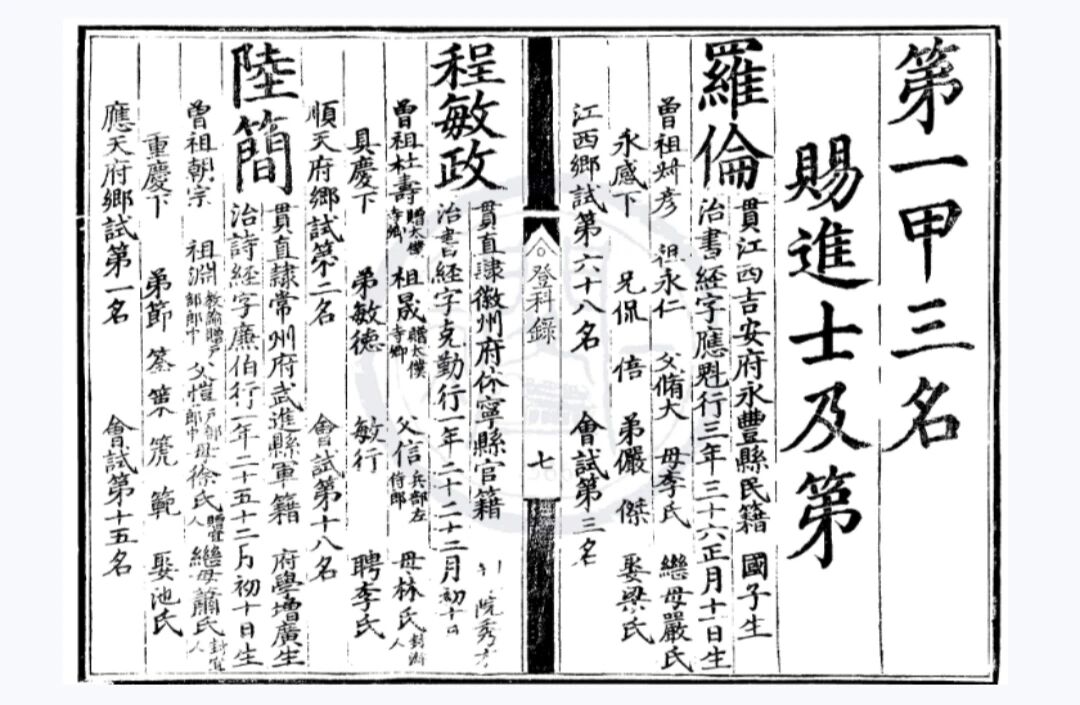 第一甲三名
賜進士及第
羅倫
貫江西吉安府永豐縣民籍 國子生
治書經字應魁行三年三十六正月十一日生
曾祖 彥 祖永仁 父脩大 母李氏 繼母嚴氏
永感下 兄侃 倍 弟儼 傑 娶梁氏
江西鄉試第六十八名 會試第三名
登科錄
七
程敏政
貫直隸徽州府休寧縣官籍 院秀才
治書經字克勤行一年二十二十二月初十日
曾祖杜壽贈太僕寺卿 祖晟贈太僕寺卿 父信兵部左侍郎 母林氏封淑人
具慶下 弟敏德 敏行 聘李氏
順天府鄉試第二名 會試第十八名
陸簡
貫直隸常州府武進縣軍籍 府學增廣生
治詩經字廉伯行一年二十五十二月初十日生
曾祖朝宗 祖淵教諭贈戶部郎中 父愷戶部郎中 母徐氏贈宜人 繼母蕭氏封宜人
重慶下 弟節 筞 篪 範 娶池氏
應天府鄉試第一名 會試第十五名